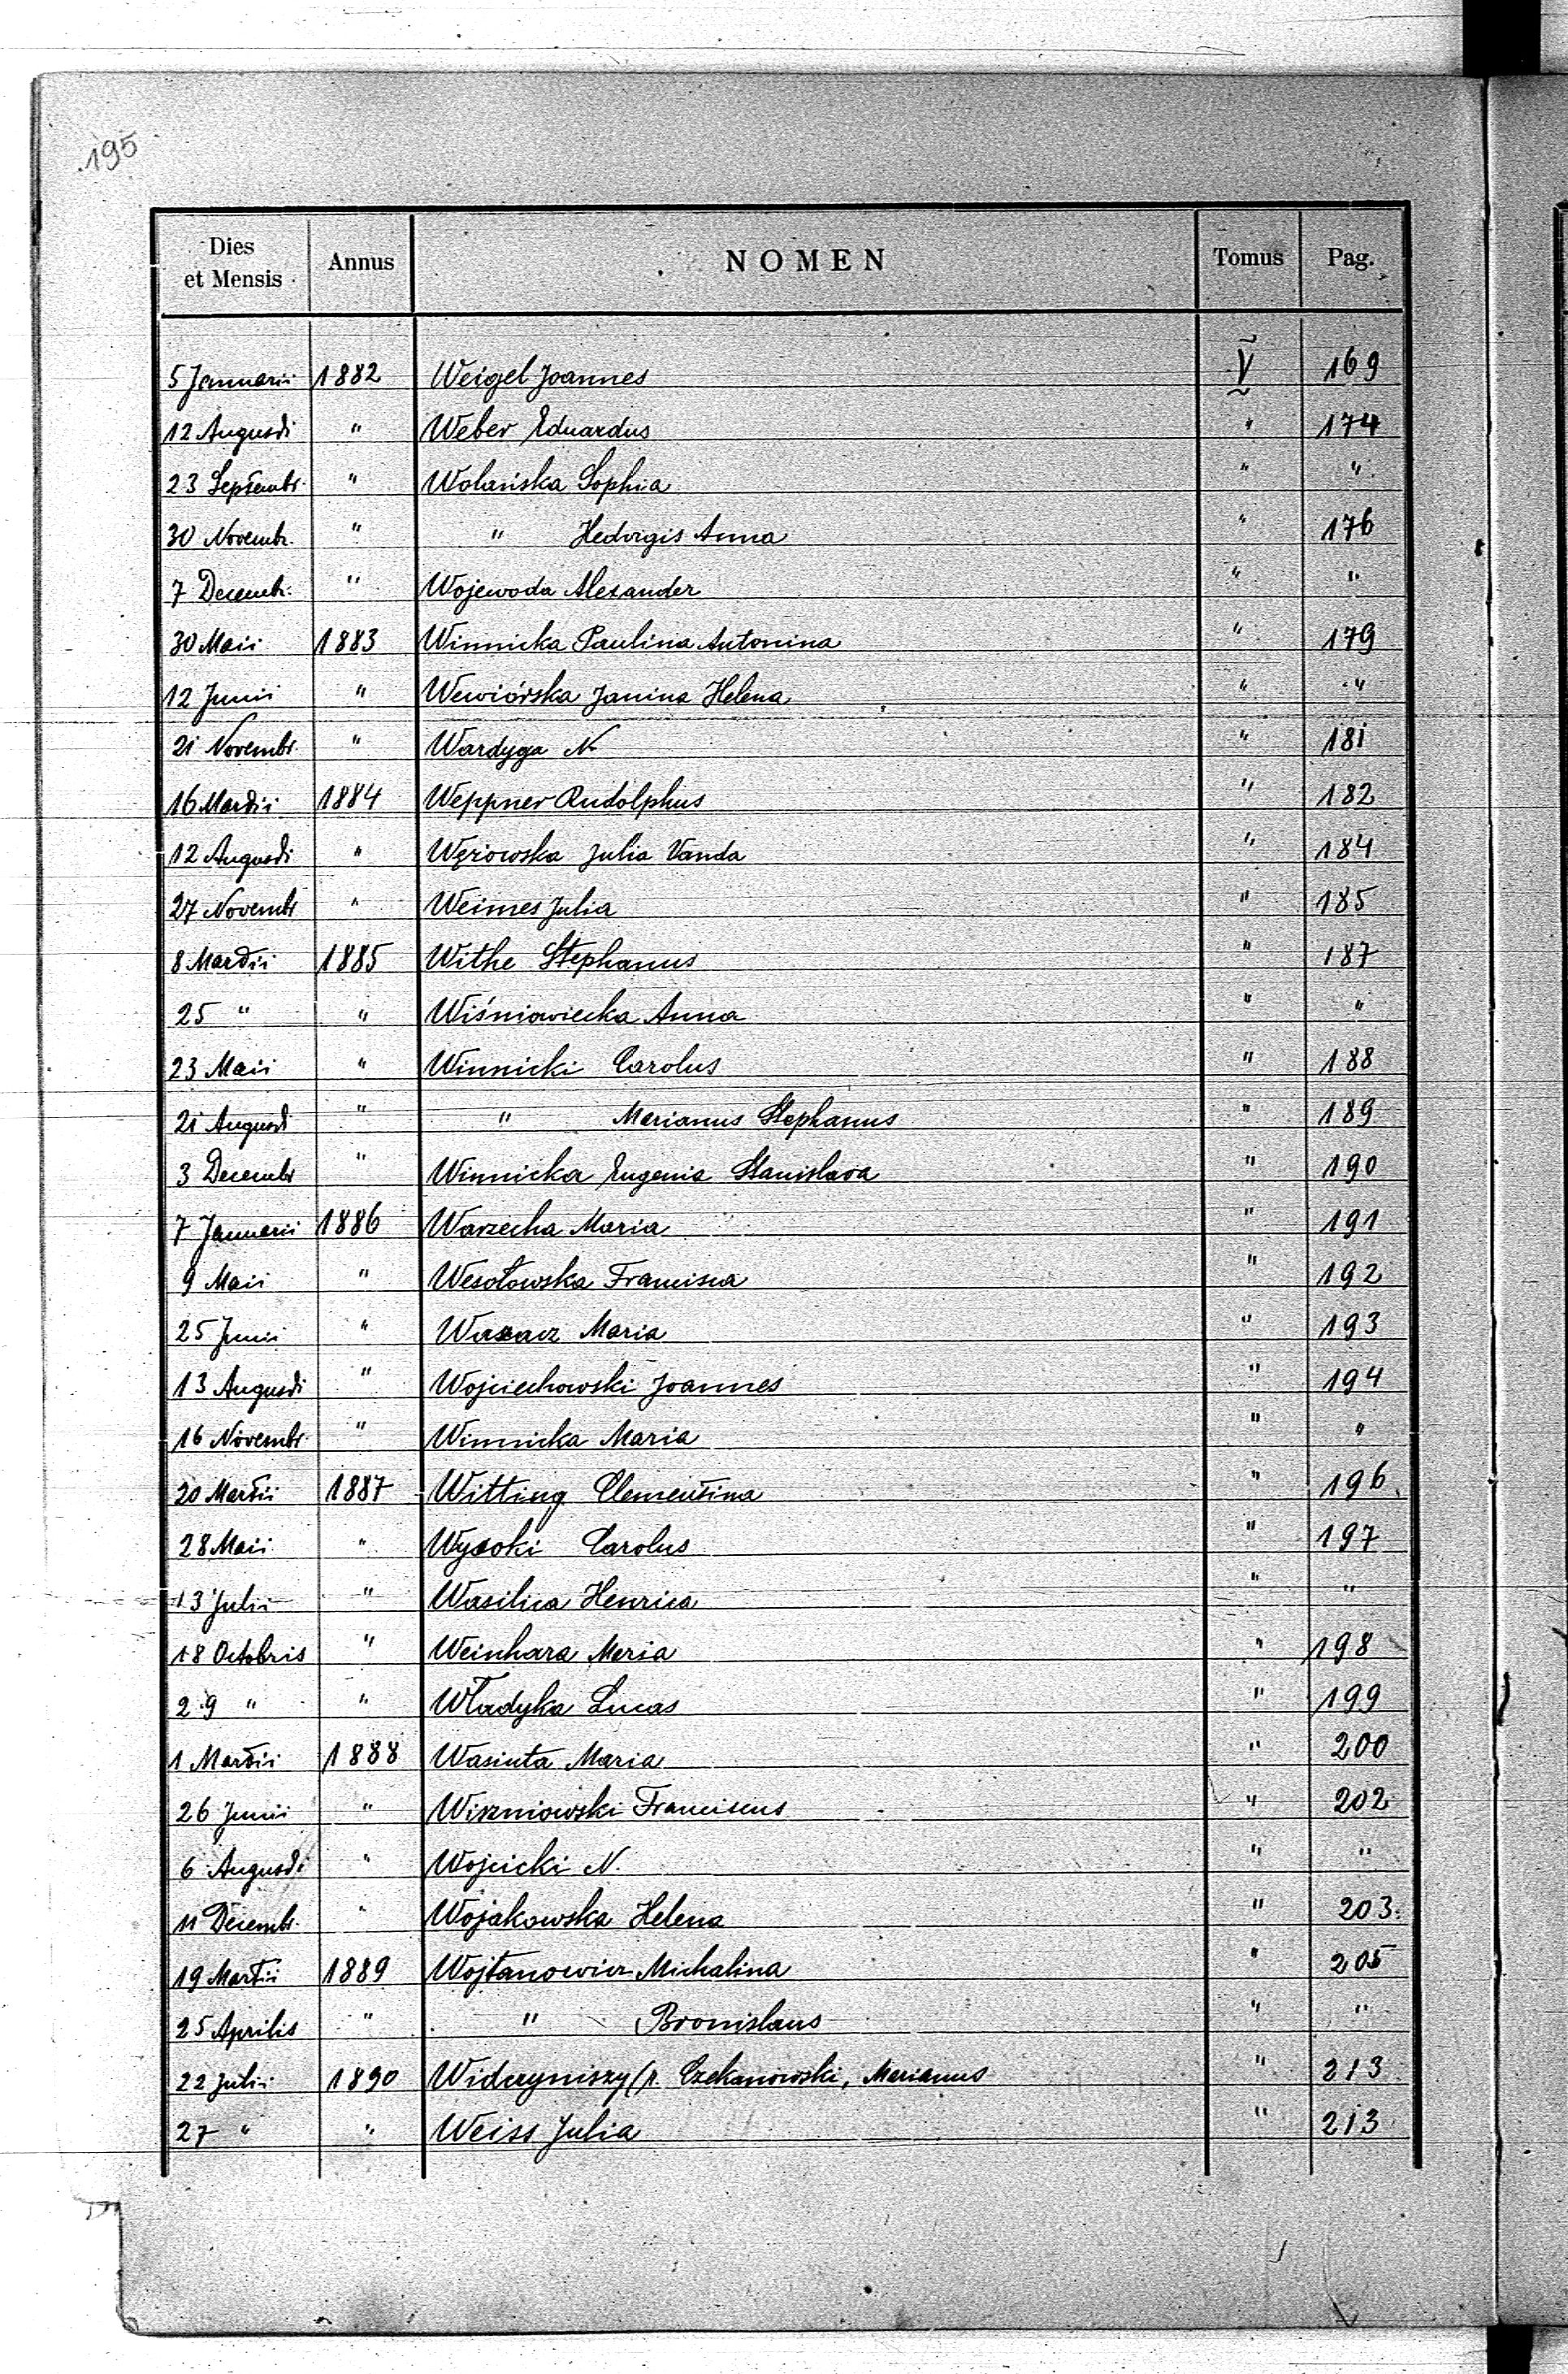 195
Dies et Mensis Annus NOMEN Tomus Pag.
5 Januarii 1882 Weigel Joannes V 169
12 Augusti " Weber Eduardus " 174
23 Septembr. " Wolańska Sophia " "
30 Novembr. " " Hedvigis Anna " 176
7 Decembr. " Wojewoda Alexander " "
30 Maii 1883 Winnicka Paulina Antonina " 179
12 Junii " Wewiórska Janina Helena " "
21 Novembr. " Wardyga N " 181
16 Martii 1884 Weppner Rudolphus " 182
12 Augusti " Węzowska Julia Vanda " 184
27 Novembr " Weimes Julia " 185
8 Martii 1885 Withe Stephanus " 187
25 " " Wiśniowiecka Anna " "
23 Maii " Winnicki Carolus " 188
21 Augusti " " Marianus Stephanus " 189
3 Decembr " Winnicka Eugenia Stanislava " 190
7 Januarii 1886 Warzecha Maria " 191
9 Maii " Wesołowska Francisca " 192
25 Junii " Maria " 193
13 Augusti " Wojciechowski Joannes " 194
16 Novembr. " Winnicka Maria " "
20 Martii 1887 Witting Clementina " 196
28 Maii " Wysoki Carolus " 197
13 Julii " Wasilica Henrica " "
18 Octobris " Weinhara Maria " 198
29 " " Władyka Lucas " 199
1 Martii 1888 Wasiuta Maria " 200
26 Junii " Wiszniowski Franciscus " 202
6 Augusti " Wojcicki N. " "
11 Decembr. " Wojakowska Helena " 203
19 Martii 1889 Wojtanowicz Michalina " 205
25 Aprilis " " Bronislaus " "
22 Julii 1890 Czekanowski, Marianus " 213
27 " " Weiss Julia " 213